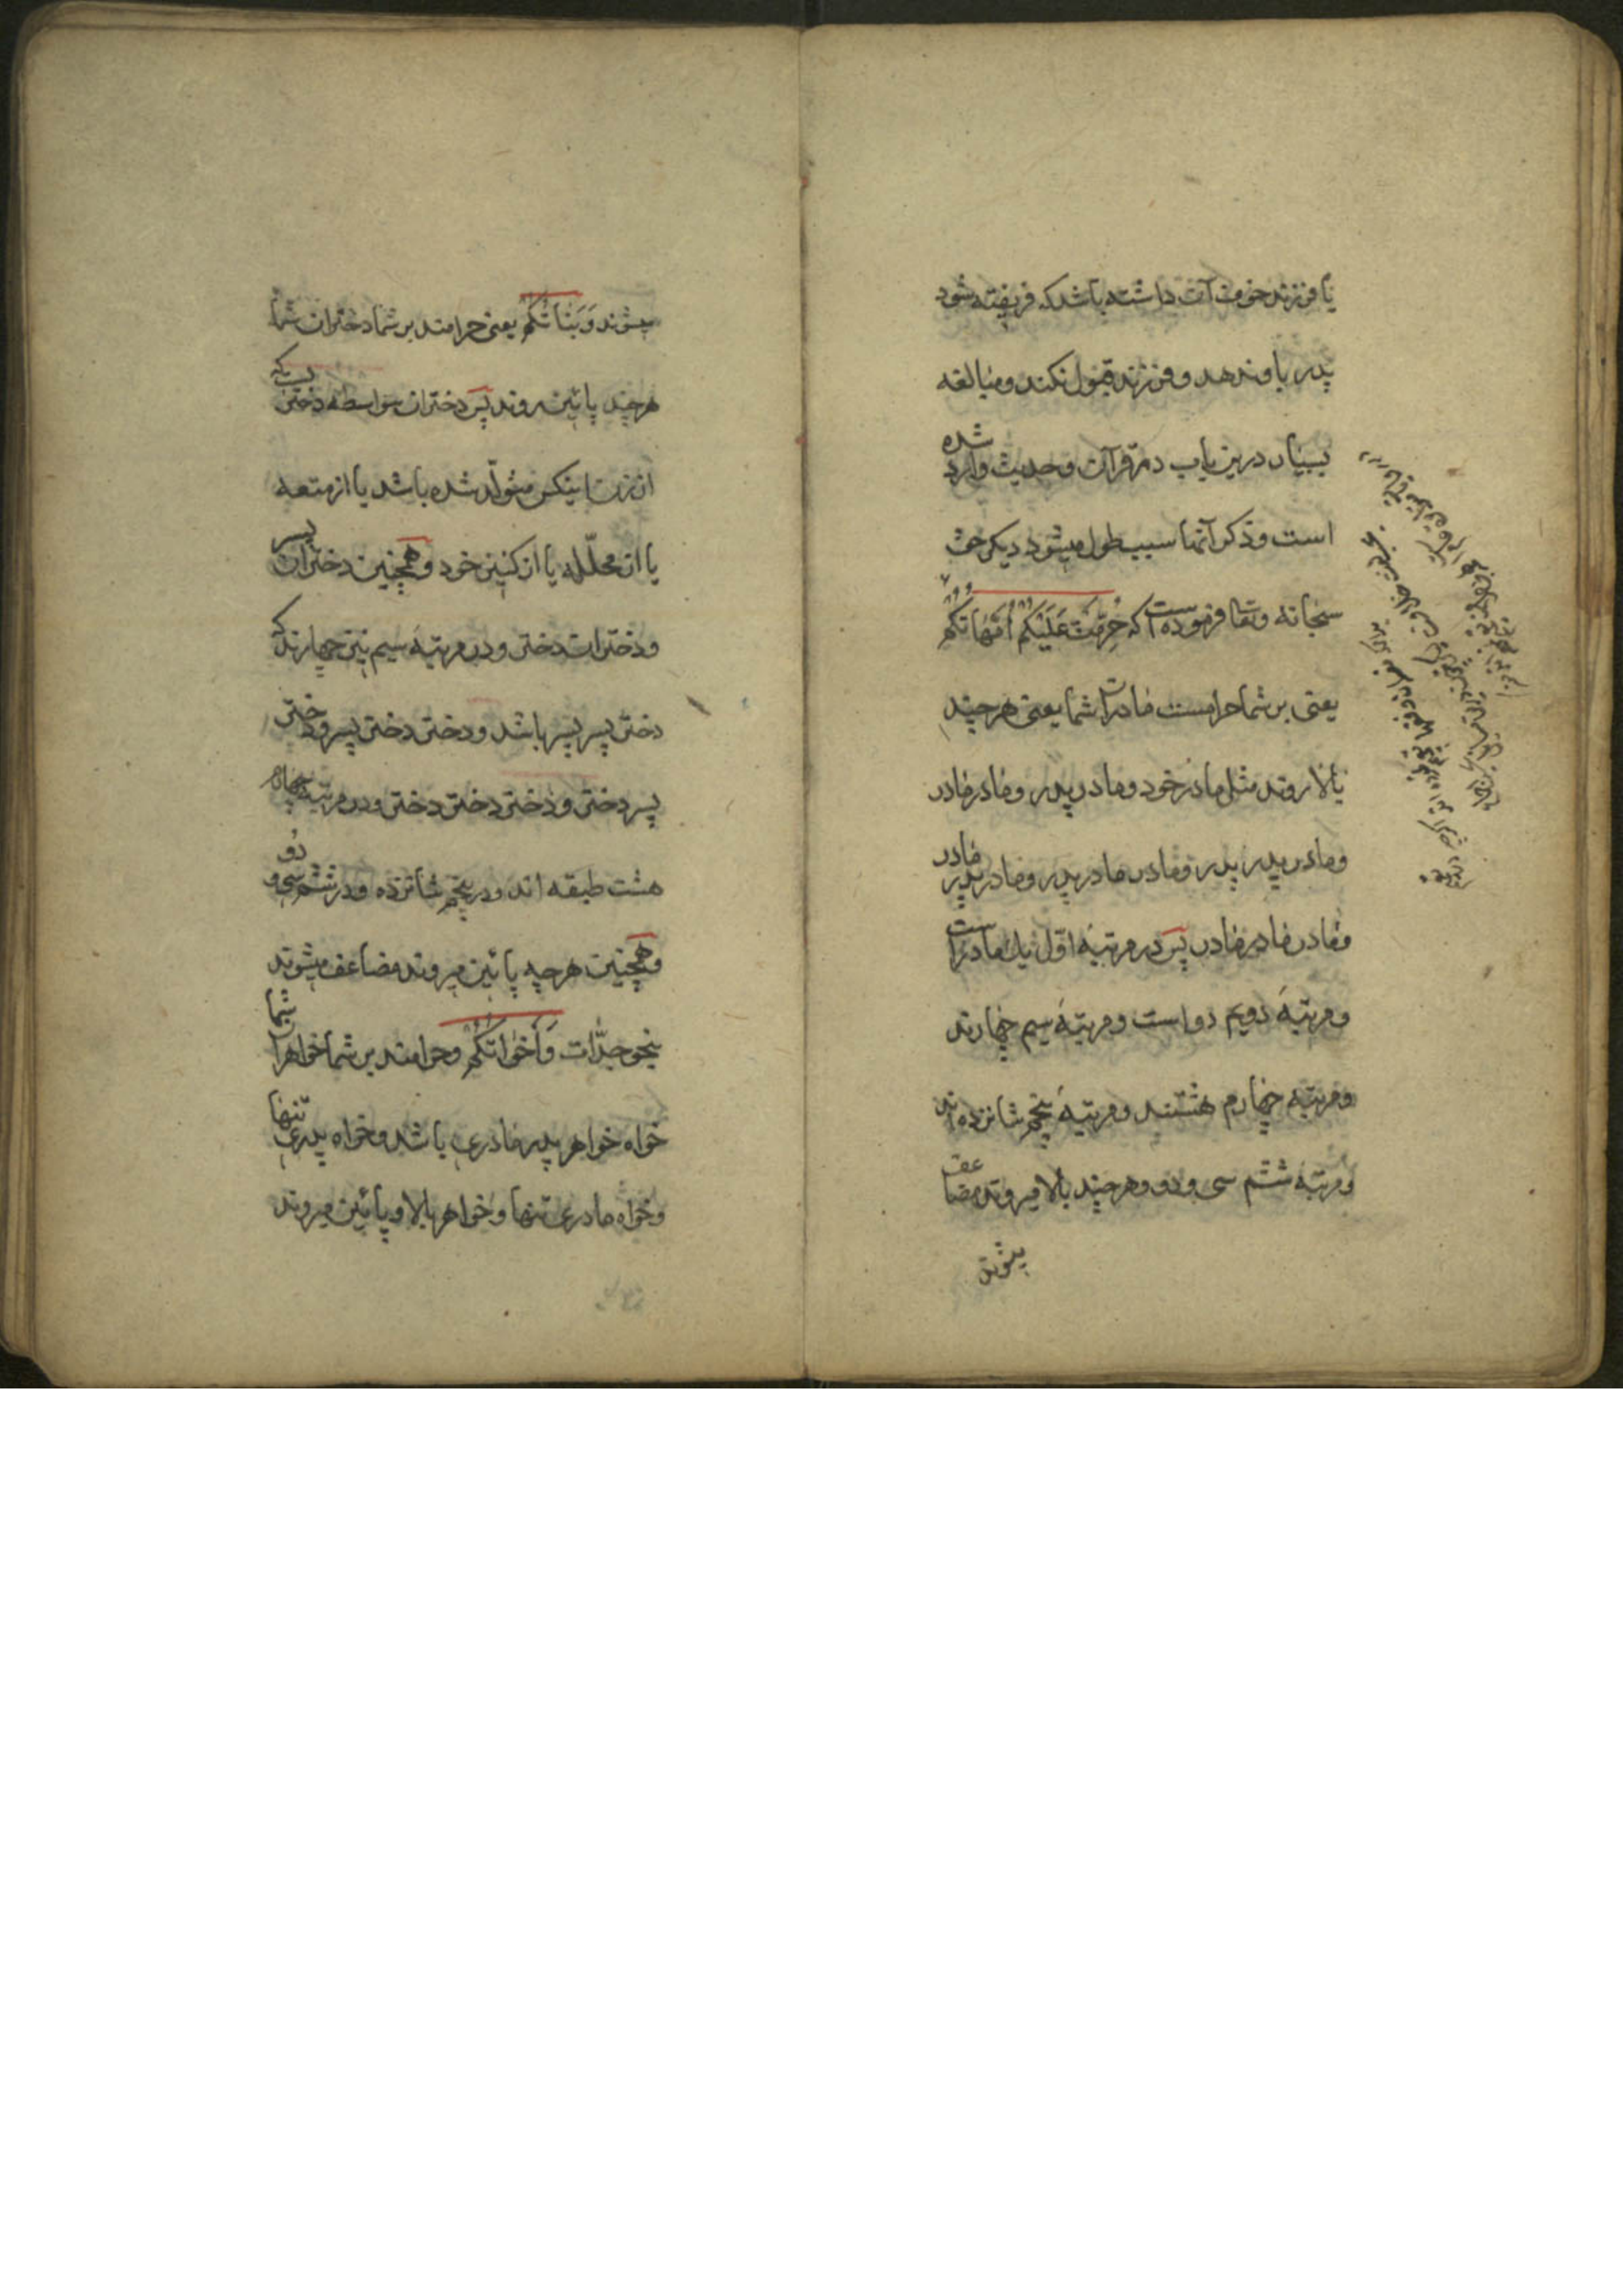 یا فرزند خوف آن داشته باشد که فریفته شود
پدر باو ندهد و فرزند قبول نکند و مبالغه
بسیار درین باب در قرآن و حدیث وارد شده
است و ذکر آنها سبب طول میشود دیکر حق
سبحانه وتعا فرموده است که حُرِّمَتْ عَلَیْکُمْ اُمَّهَاتُکُمْ
یعنی بر شما حرامست مادران شما یعنی هرچند
بالا روند مثل مادر خود و مادر پدر و مادر مادر
و مادر پدر پدر و مادر مادر پدر و مادر پدر مادر
و مادر مادر مادر پس در مرتبهٔ اوّل یك مادر است
و مرتبهٔ دویم دو است و مرتبهٔ سیم چهارند
و مرتبهٔ چهارم هشتند و مرتبهٔ پنجم شانزده اند
و مرتبهٔ ششم سی و دو و هرچند بالا میروند مضاعف
میشوند
میشوند وَبَنَاتُکُمْ یعنی حرامند بر شما دختران شما
هرچند پائین روند پس دختران بیواسطه دختریست که
از زن اینکس متولّد شده باشد یا از متعه
یا از محلّله یا از کنیز خود و همچنین دختران پسر
و دختران دختر و در مرتبهٔ سیم نیز چهارند که
دختر پسر پسر باشد و دختر دختر پسر و دختر
پسر دختر و دختر دختر دختر و در مرتبه چهارم
هشت طبقه اند و در پنجم شانزده و در ششم سی و دو
و همچنین هرچه پائین میروند مضاعف میشوند
بنحو جدّات وَاَخَوَاتُکُمْ و حرامند بر شما خواهران شما
خواه خواهر پدر مادری باشد و خواه پدری تنها
و خواه مادری تنها و خواهر بالا و پائین میروند